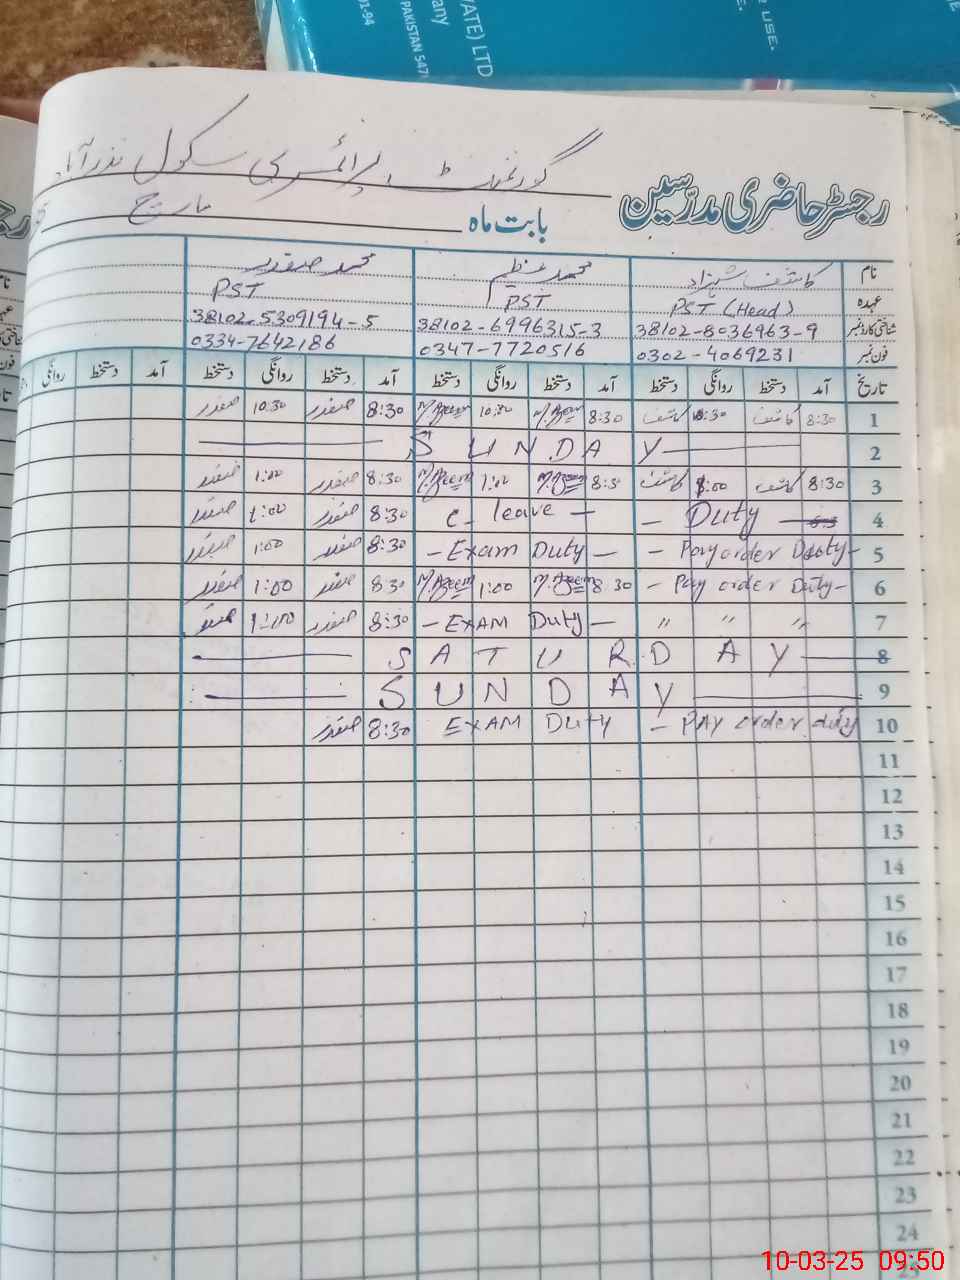 VATE) LTD
any
01-94
PAKISTAN 547
R USE.
E.
گورنمنٹ پرائمری سکول نذرآباد
رجسٹر حاضری مدرّسین
بابت ماہ مارچ
نام کاشف شہزاد محمد عظیم محمد صفدر
عہدہ PST (Head) PST PST
شناختی کارڈ نمبر 38102-8036963-9 38102-6996315-3 38102-5309194-5
فون نمبر 0302-4069231 0347-7720516 0334-7642186
تاریخ آمد دستخط روانگی دستخط آمد دستخط روانگی دستخط آمد دستخط روانگی دستخط آمد دستخط روانگی
1 8:30 کاشف 10:30 کاشف 8:30 M.Azeem 10:30 M.Azeem 8:30 صفدر 10:30 صفدر
2 SUNDAY
3 8:30 کاشف 1:00 کاشف 8:30 M.Azeem 1:00 M.Azeem 8:30 صفدر 1:00 صفدر
4 - Duty - C- leave - 8:30 صفدر 1:00 صفدر
5 - Pay order Duty - - Exam Duty - 8:30 صفدر 1:00 صفدر
6 - Pay order Duty - 8 30 M.Azeem 1:00 M.Azeem 8:30 صفدر 1:00 صفدر
7 " " " - EXAM Duty - 8:30 صفدر 1:00 صفدر
8 SATURDAY
9 SUNDAY
10 - PAY order duty EXAM Duty 8:30 صفدر
11
12
13
14
15
16
17
18
19
20
21
22
23
24
25
10-03-25 09:50